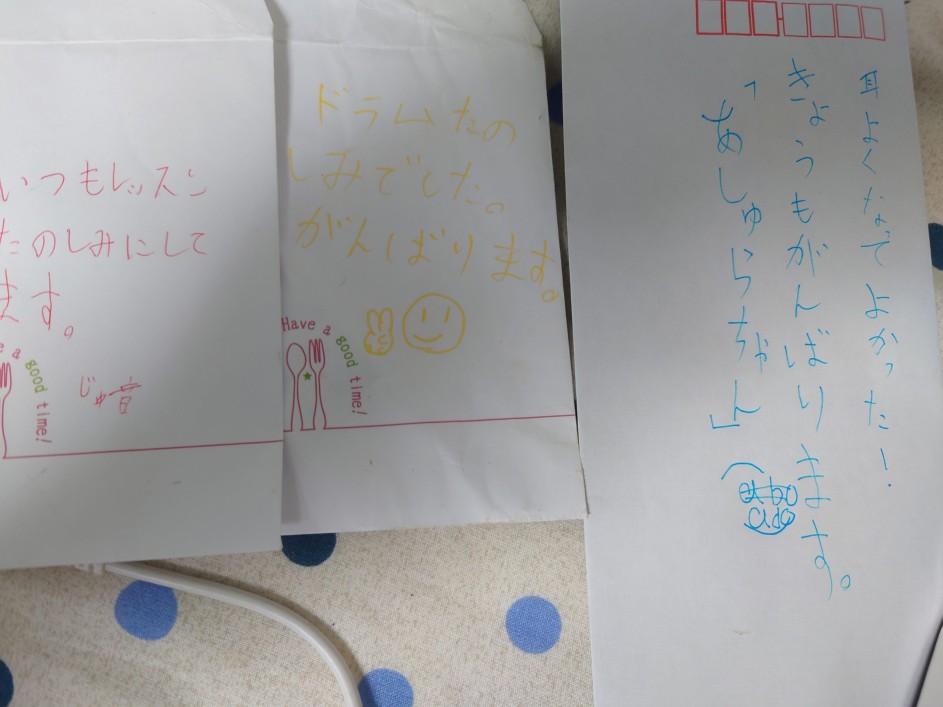 いつもレッスン
たのしみにして
ます。
e a good time!
じゅ音
ドラムたの
しみでした。
がんばります。
Have a good time!
耳よくなってよかった!
きょうもがんばります。
「あしゅらちゃん」
ado